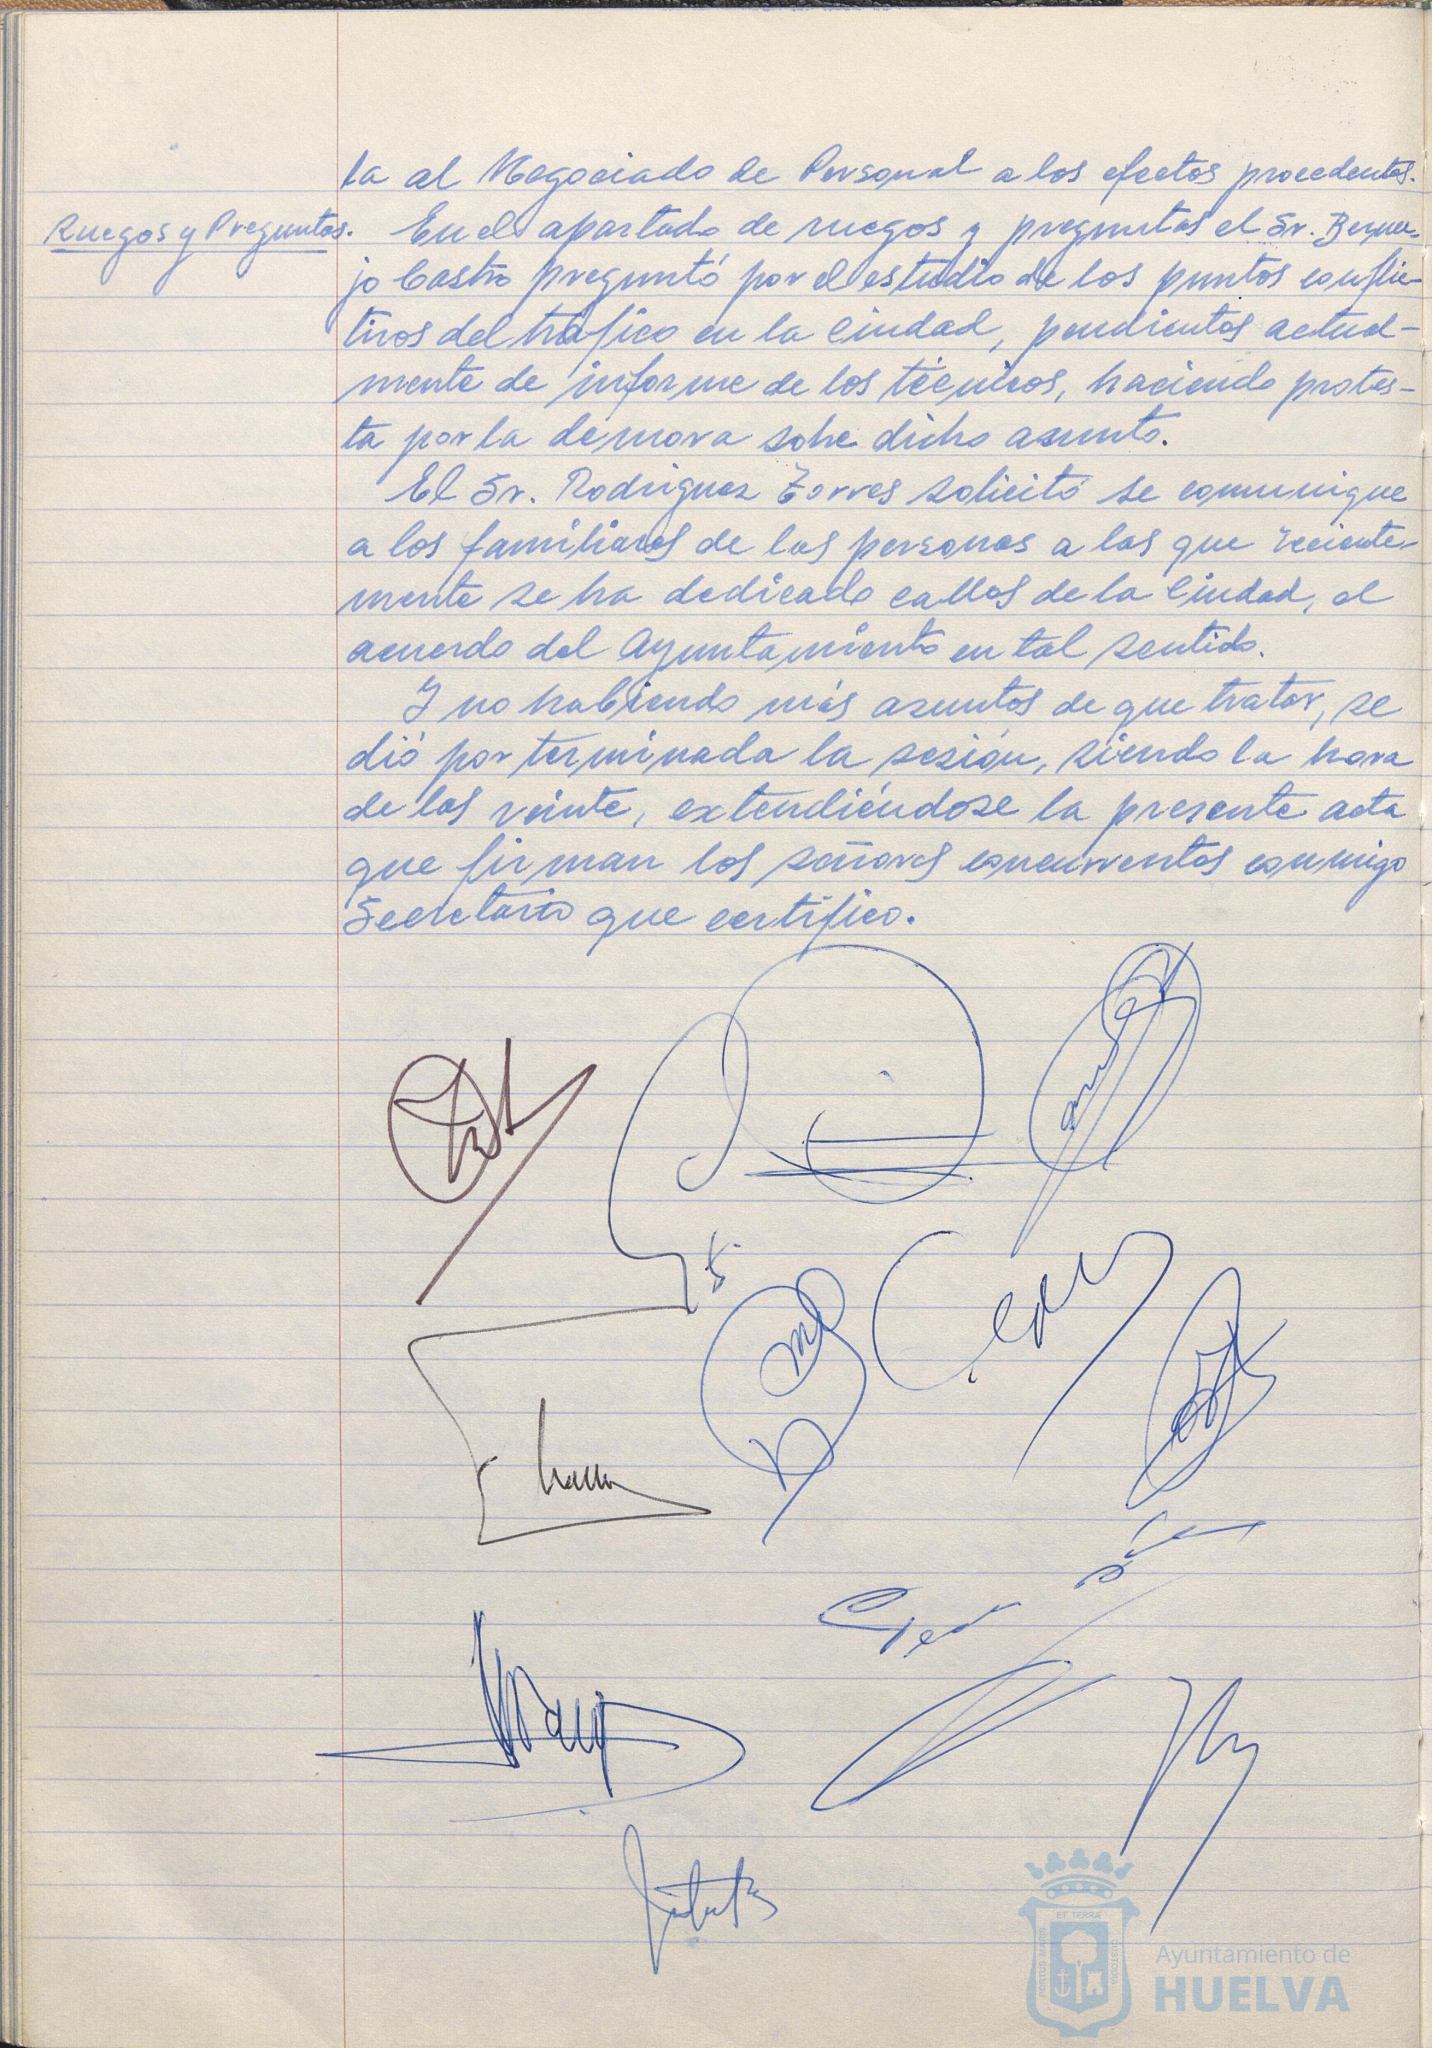 ta al Negociado de Personal a los efectos procedentes.
Ruegos y Preguntas. En el apartado de ruegos y preguntas el Sr. Bermejo Castro preguntó por el estudio de los puntos conflic-
tivos del tráfico en la Ciudad, pendientes actual-
mente de informe de los técnicos, haciendo protes-
ta por la demora sobre dicho asunto.
El Sr. Rodriguez Torres solicitó se comunique
a los familiares de las personas a las que reciente-
mente se ha dedicado calles de la Ciudad, el
acuerdo del Ayuntamiento en tal sentido.
Y no habiendo más asuntos de que tratar, se
dió por terminada la sesión, siendo la hora
de las veinte, extendiéndose la presente acta
que firman los señores concurrentes conmigo
Secretario que certifico.
ET TERRÆ
PORTUS MARIS
CUSTODIA
Ayuntamiento de
HUELVA